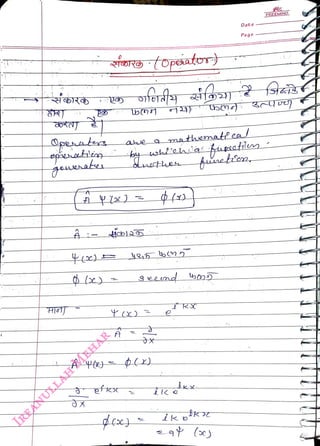 Date
Page
संकारक (Operator)
→ संकारक एक गणितीय संक्रिया है जिसके
द्वारा एक फलन नया फलन उत्पन्न
करता है।
Operators are a mathematical
operation by which a function
generates another function.
Â Ψ(x) = ϕ(x)
Â :- संकारक
Ψ(x) = फलन
ϕ(x) = second फलन
माना - Ψ(x) = e^ikx
Â = ∂/∂x
Â Ψ(x) = ϕ(x)
∂/∂x e^ikx = ik e^ikx
ϕ(x) = ik e^ikx
= aΨ(x)
IRFANULLAH MEHAR